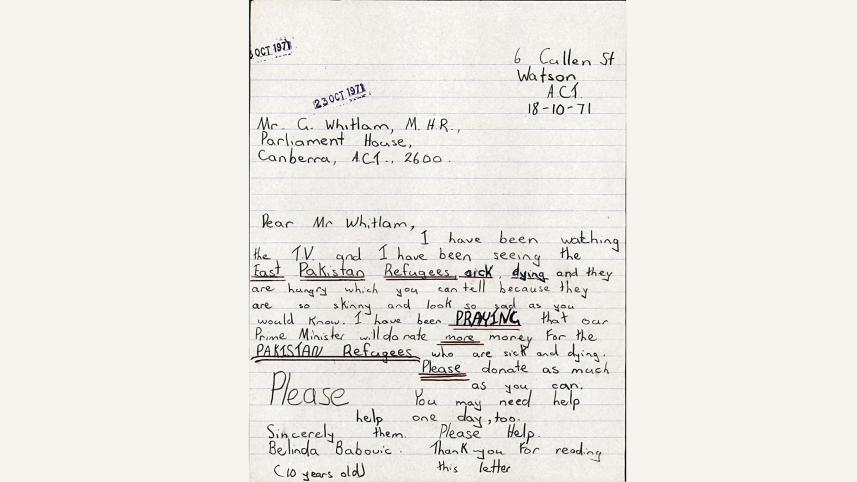 3 OCT 1971
23 OCT 1971
6 Cullen St
Watson
A.C.T.
18-10-71
Mr. G. Whitlam, M.H.R.,
Parliament House,
Canberra, A.C.T., 2600.
Dear Mr Whitlam,
I have been watching
the T.V. and I have been seeing the
East Pakistan Refugees sick, dying and they
are hungry which you can tell because they
are so skinny and look so sad as you
would know. I have been PRAYING that our
Prime Minister will donate more money for the
PAKISTAN Refugees who are sick and dying.
Please donate as much
as you can.
Please You may need help
help one day, too.
Sincerely them. Please Help.
Belinda Babovic. Thank you for reading
(10 years old) this letter